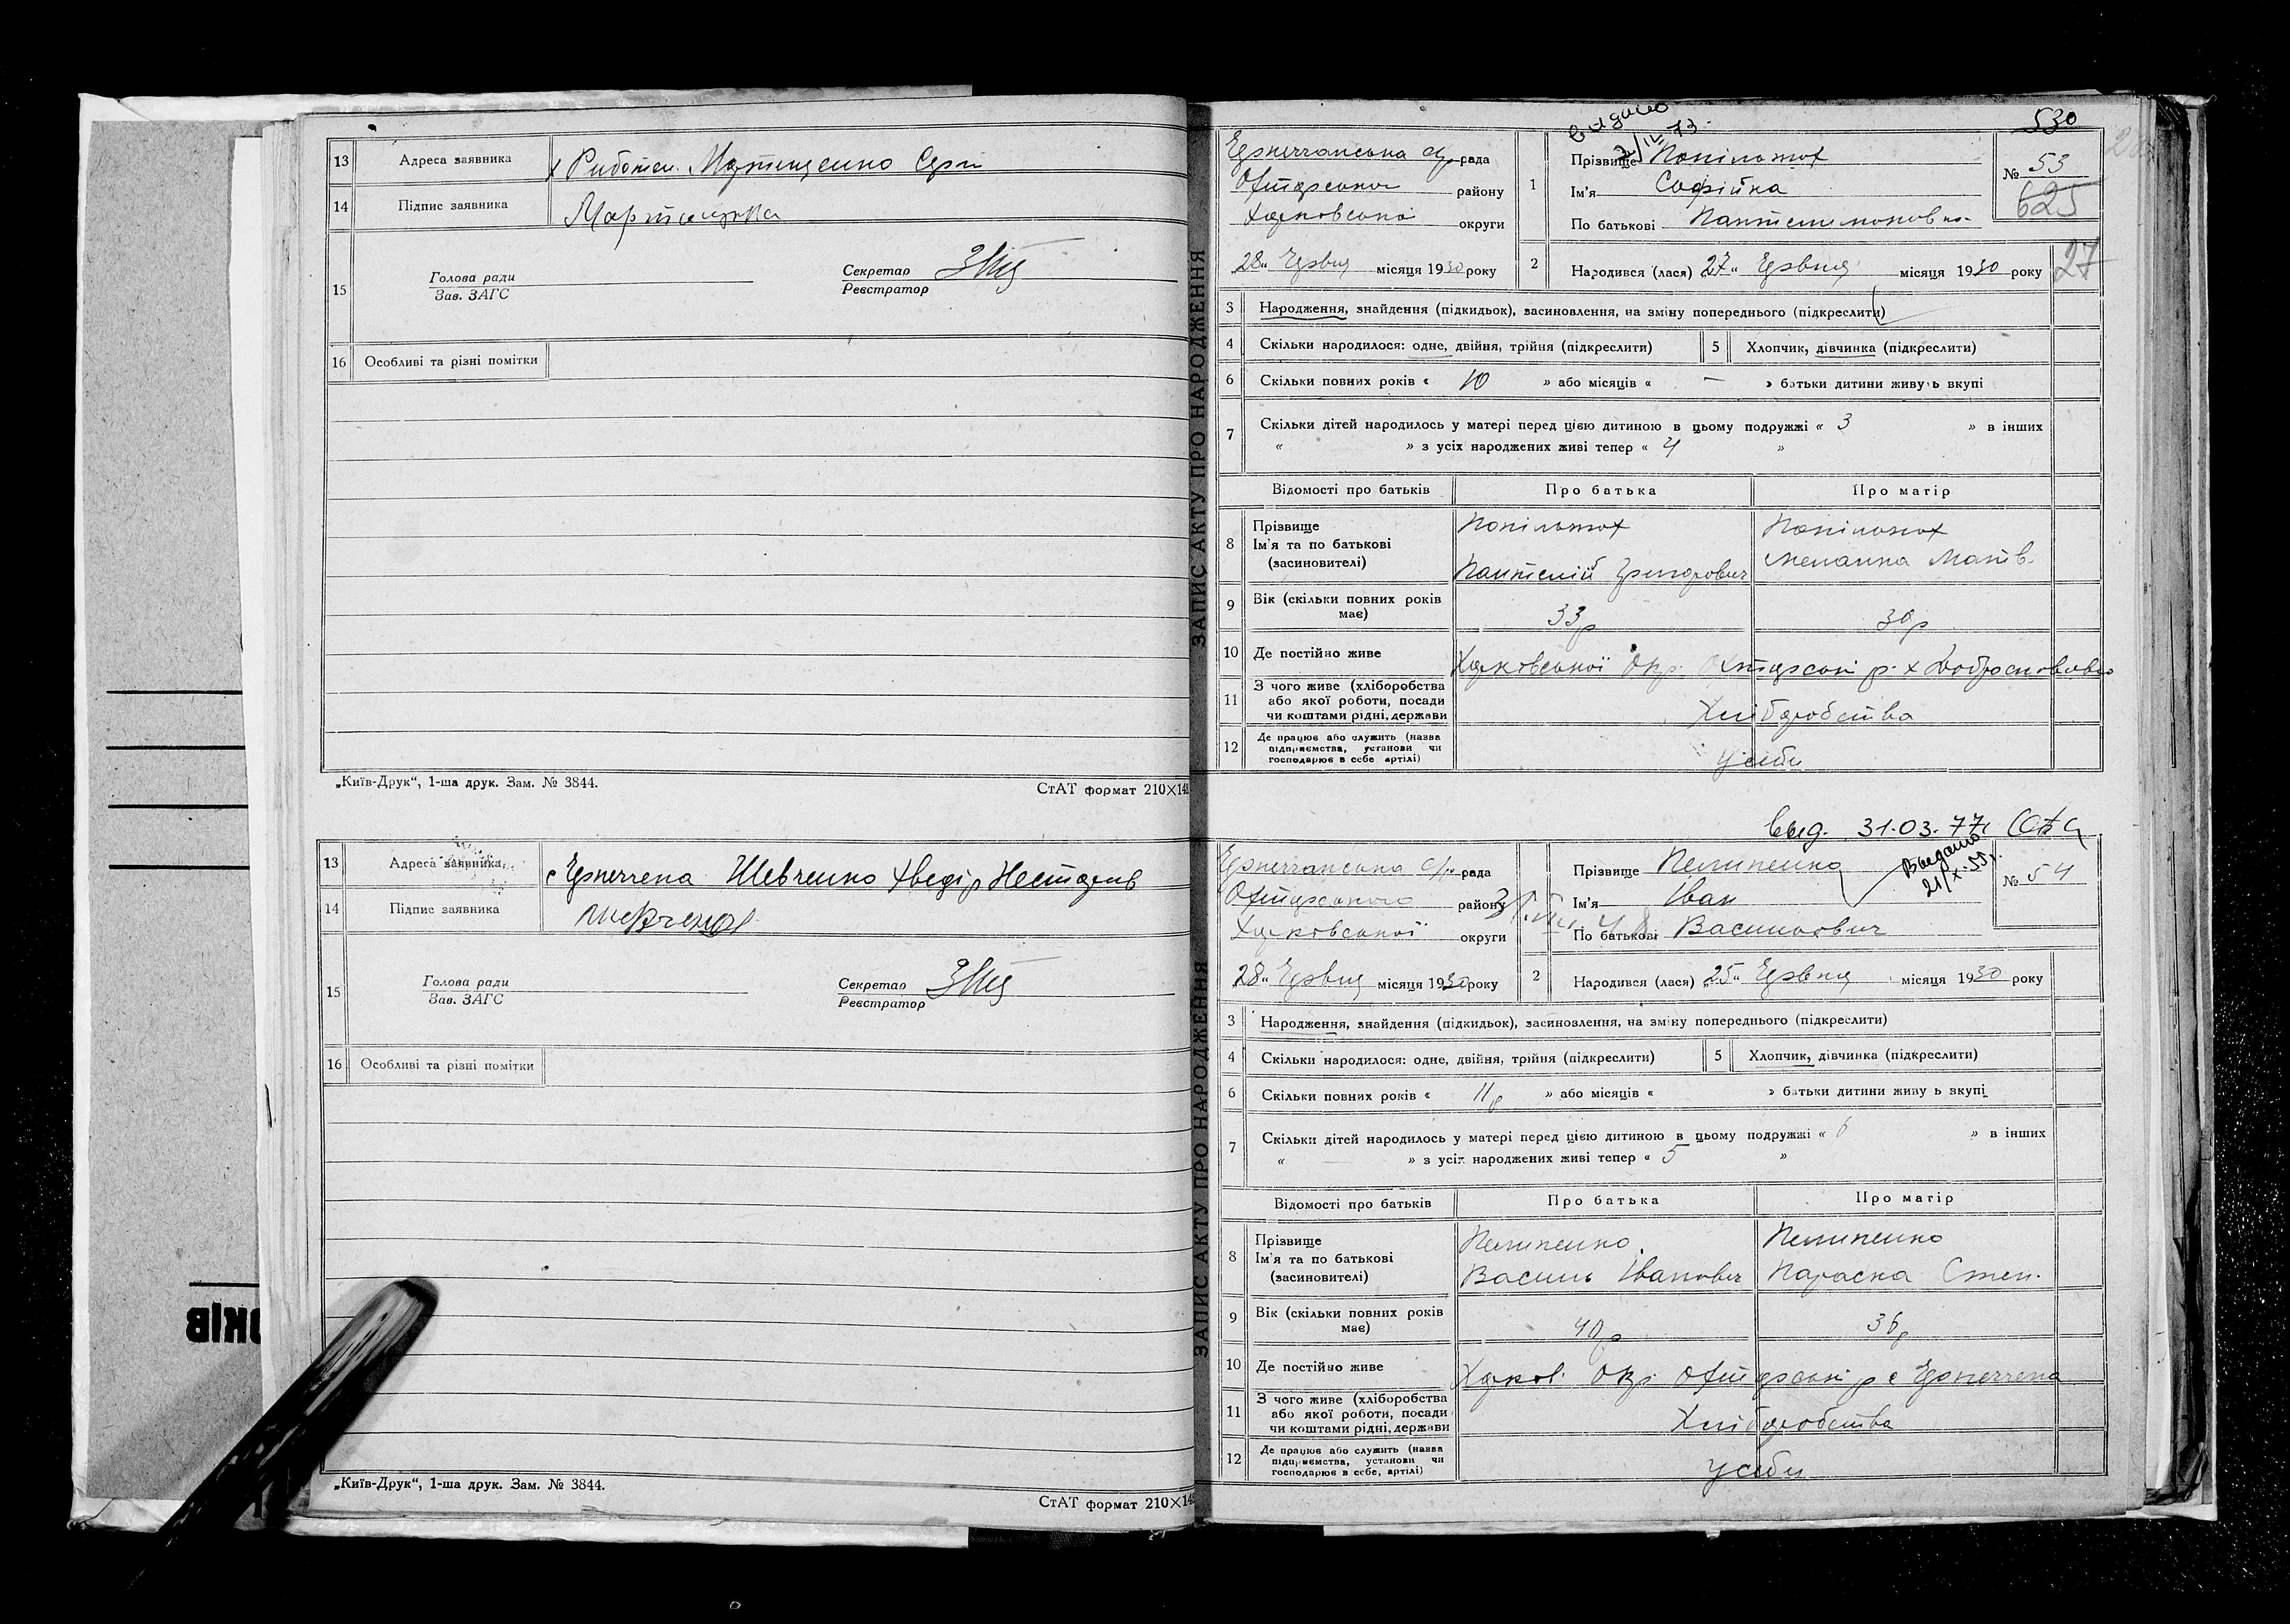 13 Адреса заявника х Риботен. Мартищенко Серг
14 Підпис заявника Мартищенко
15 Голова ради
Зав. ЗАГС
Секретар
Реєстратор
16 Особливі та різні помітки
„Київ-Друк“, 1-ша друк. Зам. № 3844.
СтАТ формат 210×148
13 Адреса заявника Шевченко Хведір
14 Підпис заявника Шевченко
15 Голова ради
Зав. ЗАГС
Секретар
Реєстратор
16 Особливі та різні помітки
„Київ-Друк“, 1-ша друк. Зам. № 3844.
СтАТ формат 210×148
ОКІВ
ЗАПИС АКТУ ПРО НАРОДЖЕННЯ
530
видано
2/IV-73.
рада
району
Харковської округи
28 „ Червня місяця 1930 року
1 Прізвище
Ім'я Софійка
По батькові Пантелимоновна
№ 53
625
2 Народився (лася) 27 „ Червня місяця 1930 року
27
3 Народження, знайдення (підкидьок), засиновлення, на зміну попереднього (підкреслити)
4 Скільки народилося: одне, двійня, трійня (підкреслити) 5 Хлопчик, дівчинка (підкреслити)
6 Скільки повних років « 10 » або місяців « — » батьки дитини живуть вкупі
7 Скільки дітей народилось у матері перед цією дитиною в цьому подружжі « 3 » в інших
« » з усіх народжених живі тепер « 4 »
Відомості про батьків Про батька Про матір
8 Прізвище
Ім'я та по батькові
(засиновителі)
Пантелій Григорович
Меланка Матв.
9 Вік (скільки повних років має) 33р 30р
10 Де постійно живе Харковської Окр.
11 З чого живе (хліборобства або якої роботи, посади чи коштами рідні, держави Хліборобства
12 Де працює або служить (назва підприємства, установи чи господарює в себе, артілі) у себи
выд. 31.03.77г
ЗАПИС АКТУ ПРО НАРОДЖЕННЯ
рада
району
Харковської округи
28 „ Червня місяця 1930 року
1 Прізвище Пелипенко
Ім'я Іван
По батькові Васильович
Выдано
21/X-55г.
№ 54
2 Народився (лася) 25 „ Червня місяця 1930 року
3 Народження, знайдення (підкидьок), засиновлення, на зміну попереднього (підкреслити)
4 Скільки народилося: одне, двійня, трійня (підкреслити) 5 Хлопчик, дівчинка (підкреслити)
6 Скільки повних років « 11р » або місяців « » батьки дитини живуть вкупі
7 Скільки дітей народилось у матері перед цією дитиною в цьому подружжі « 6 » в інших
« » з усіх народжених живі тепер « 5 »
Відомості про батьків Про батька Про матір
8 Прізвище
Ім'я та по батькові
(засиновителі)
Пелипенко
Василь Іванович
Пелипенко
Параска Степ.
9 Вік (скільки повних років має) 40р 36р
10 Де постійно живе Харков. Окр.
11 З чого живе (хліборобства або якої роботи, посади чи коштами рідні, держави Хліборобства
12 Де працює або служить (назва підприємства, установи чи господарює в себе, артілі) у себи